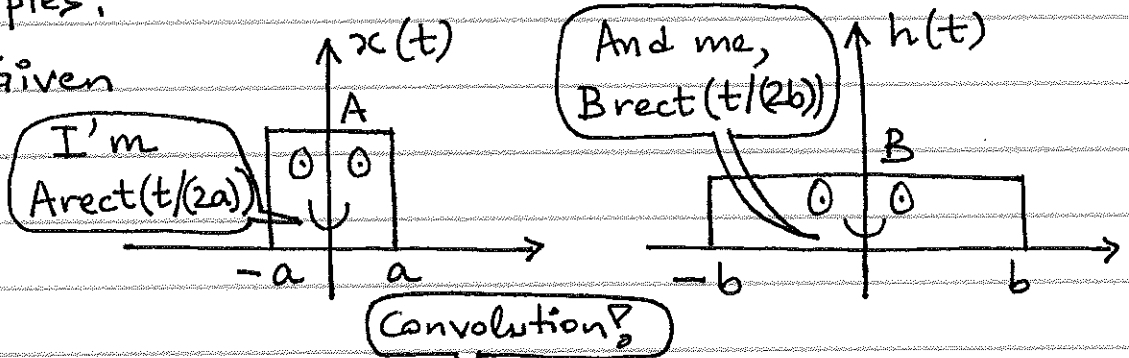 ples.
Given
x(t)
A
I'm
A rect(t/(2a))
-a
a
And me,
B rect(t/(2b))
h(t)
B
-b
b
Convolution?